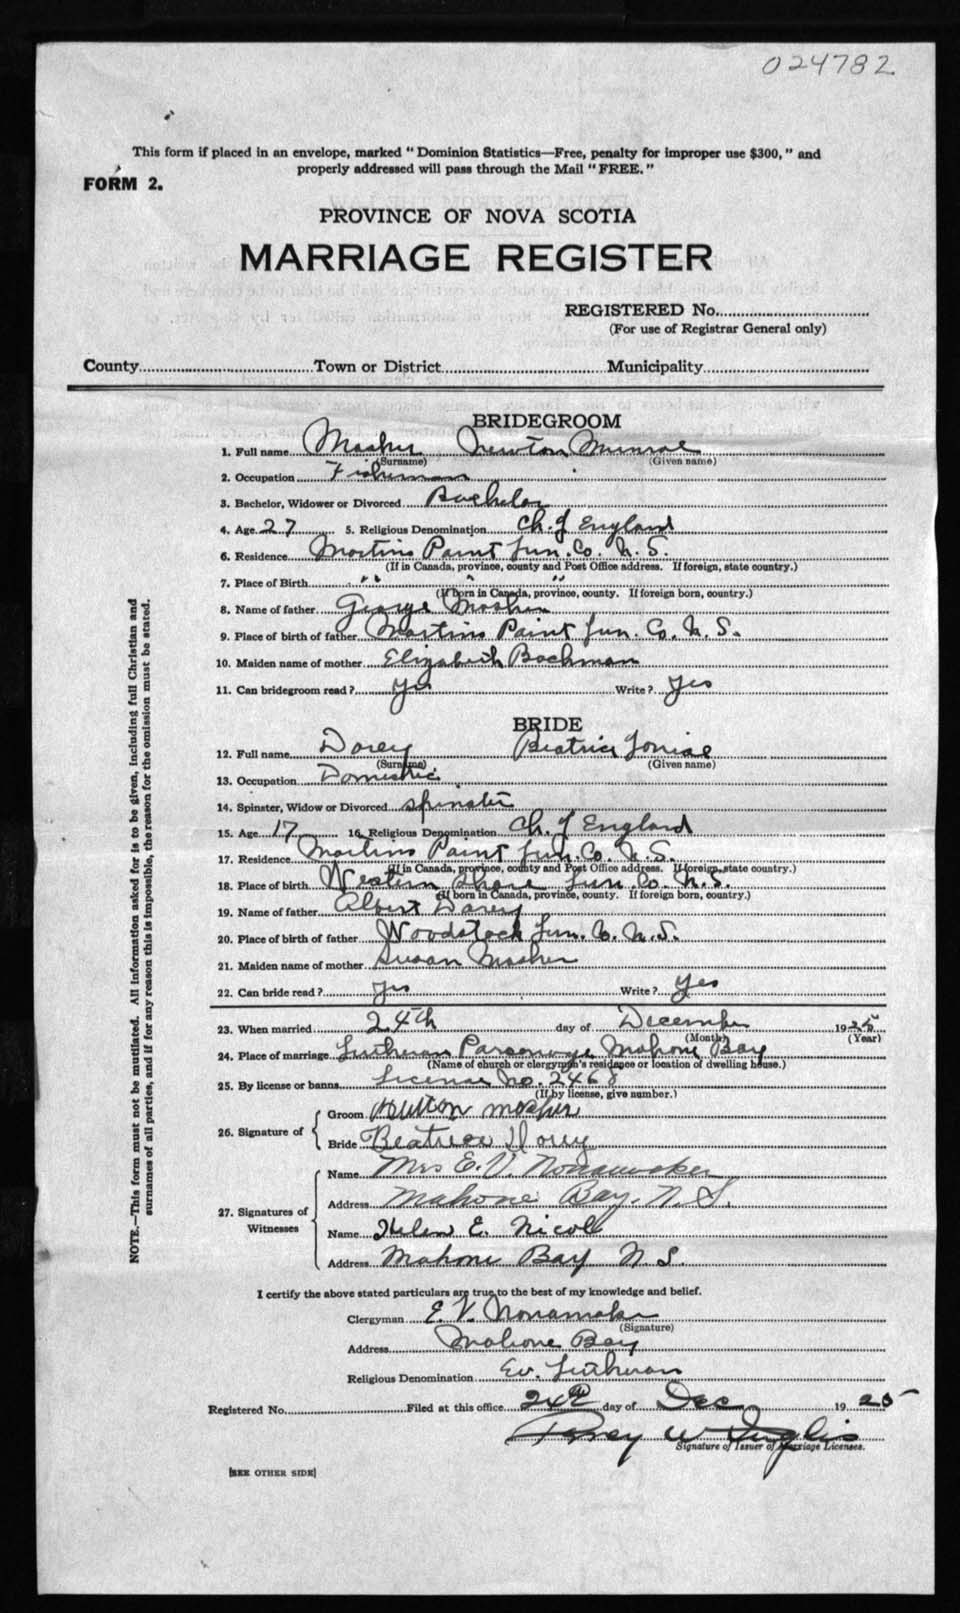 024782
This form if placed in an envelope, marked "Dominion Statistics—Free, penalty for improper use $300," and
properly addressed will pass through the Mail "FREE."
FORM 2.
PROVINCE OF NOVA SCOTIA
MARRIAGE REGISTER
REGISTERED No.
(For use of Registrar General only)
County Town or District Municipality
BRIDEGROOM
1. Full name Mosher Newton Munroe
(Surname) (Given name)
2. Occupation Fisherman
3. Bachelor, Widower or Divorced Bachelor
4. Age 27 5. Religious Denomination Ch. of England
6. Residence Martins Point Lun. Co. N. S.
(If in Canada, province, county and Post Office address. If foreign, state country.)
7. Place of Birth " " "
(If born in Canada, province, county. If foreign born, country.)
8. Name of father George Mosher
9. Place of birth of father Martins Point Lun. Co. N. S.
10. Maiden name of mother Elizabeth Bachman
11. Can bridegroom read? Yes Write? Yes
BRIDE
12. Full name Dorey Beatrice Louise
(Surname) (Given name)
13. Occupation Domestic
14. Spinster, Widow or Divorced spinster
15. Age 17 16. Religious Denomination Ch. of England
17. Residence Martins Point Lun. Co. N. S.
(If in Canada, province, county and Post Office address. If foreign, state country.)
18. Place of birth Western Shore Lun. Co. N. S.
(If born in Canada, province, county. If foreign born, country.)
19. Name of father Albert Dorey
20. Place of birth of father Woodstock Lun. Co. N. S.
21. Maiden name of mother Susan Mosher
22. Can bride read? Yes Write? Yes
23. When married 24th day of December 1925
(Month) (Year)
24. Place of marriage Lutheran Parsonage Mahone Bay
(Name of church or clergyman's residence or location of dwelling house.)
25. By license or banns License No. 2468
(If by license, give number.)
26. Signature of
Groom Newton Mosher
Bride Beatrice Dorey
27. Signatures of Witnesses
Name Mrs E. V. Nonamaker
Address Mahone Bay. N. S.
Name Helen E. Nicoll
Address Mahone Bay N. S.
I certify the above stated particulars are true to the best of my knowledge and belief.
Clergyman E. V. Nonamaker
(Signature)
Address Mahone Bay
Religious Denomination Ev. Lutheran
Registered No. Filed at this office 24th day of Dec 1925
Percy W Inglis
Signature of Issuer of Marriage Licenses.
[SEE OTHER SIDE]
NOTE.—This form must not be mutilated. All information asked for is to be given, including full Christian and
surnames of all parties, and if for any reason this is impossible, the reason for the omission must be stated.